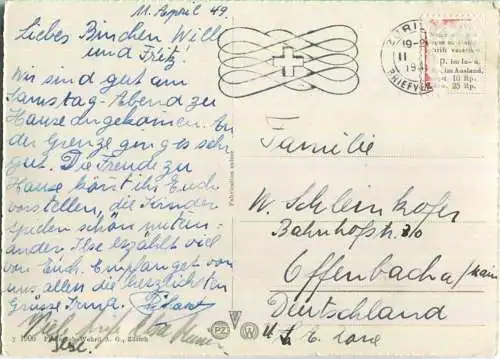 11. April 49
Liebes Binchen Willi
und Fritz
Wir sind gut am
Samstag-Abend zu
Hause angekommen. An
der Grenze ging es sehr
gut. Die Freude zu
Hause könt ihr Euch
vorstellen, die Kinder
spielen schön mitein-
ander. Ilse erzählt viel
von Euch. Empfanget von
uns allen die herzlichsten
Grüsse Irma.
Viele
Ilse.
ZÜRICH
19-2
11
194
BRIEFVE
D. im In- u.
im Ausland,
10 Rp.
25 Rp.
Fabrication suisse
Familie
W. Schleinkofer
Bahnhofstr. 3/0
Offenbach a/Main
Deutschland
U.S. Zone
Wehrli A. G., Zürich
PZ